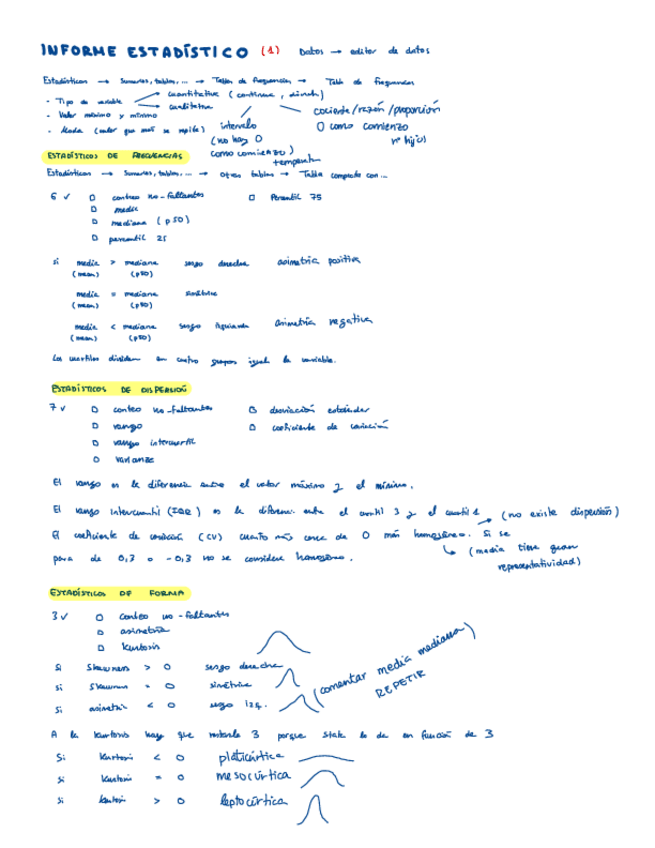 INFORME ESTADÍSTICO (1) Datos → editor de datos
Estadísticas → Sumarios, tablas, ... → Tablas de frecuencias → Tabla de frecuencias
- Tipo de variable cuantitativa (continua, discreta)
cualitativa
- Valor máximo y mínimo
- Moda (valor que más se repite)
intervalo
(no hay 0
como comienzo)
temperatura
cociente/razón/proporción
0 como comienzo
nº hijos
ESTADÍSTICOS DE FRECUENCIAS
Estadísticas → Sumarios, tablas, ... → Otras tablas → Tabla compacta con...
6 ✓ □ conteo no-faltantes □ Percentil 75
□ media
□ mediana (p50)
□ percentil 25
si media > mediana sesgo derecha asimetría positiva
(mean) (p50)
media = mediana simétrica
(mean) (p50)
media < mediana sesgo izquierda asimetría negativa
(mean) (p50)
Los cuartiles dividen en cuatro grupos igual la variable.
ESTADÍSTICOS DE DISPERSIÓN
7 ✓ □ conteo no-faltantes □ desviación estándar
□ rango □ coeficiente de variación
□ rango intercuartil
□ varianza
El rango es la diferencia entre el valor máximo y el mínimo.
El rango intercuartil (IQR) es la diferencia entre el cuartil 3 y el cuartil 1
(no existe dispersión)
El coeficiente de variación (CV) cuanto más cerca de 0 más homogéneo. Si se
pasa de 0,3 o -0,3 no se considera homogéneo.
↳ (media tiene gran
representatividad)
ESTADÍSTICOS DE FORMA
3 ✓ □ conteo no-faltantes
□ asimetría
□ kurtosis
Si Skewness > 0 sesgo derecha
si Skewness = 0 simétrica
si asimetría < 0 sesgo izq.
(comentar media mediana)
REPETIR
A la kurtosis hay que restarle 3 porque stata lo da en función de 3
Si kurtosis < 0 platicúrtica
si kurtosis = 0 mesocúrtica
si kurtosis > 0 leptocúrtica